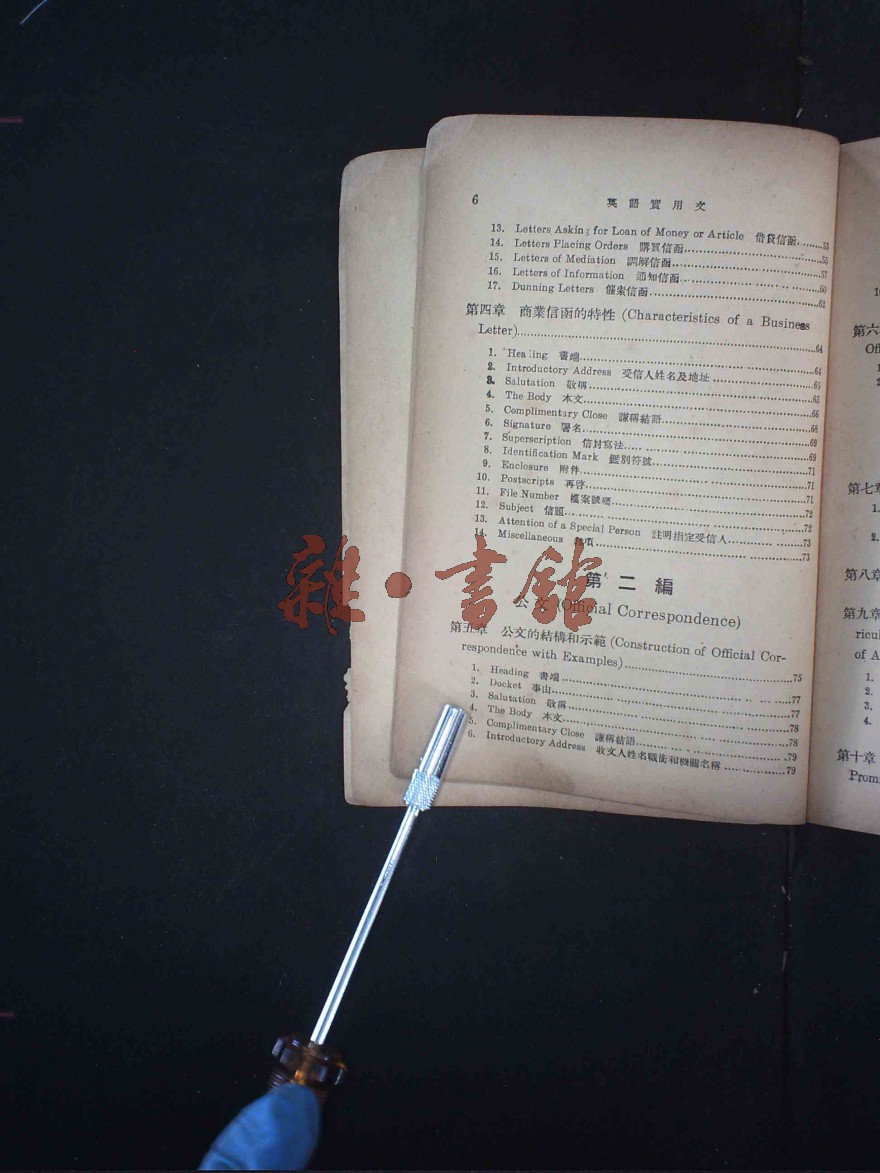 6 英語實用文
13. Letters Asking for Loan of Money or Article 借貸信函........53
14. Letters Placing Orders 購買信函........55
15. Letters of Mediation 調解信函........57
16. Letters of Information 通知信函........60
17. Dunning Letters 催索信函........62
第四章 商業信函的特性 (Characteristics of a Business
Letter)........64
1. Heading 書端........64
2. Introductory Address 受信人姓名及地址........65
3. Salutation 敬稱........65
4. The Body 本文........66
5. Complimentary Close 謙稱結語........68
6. Signature 署名........69
7. Superscription 信封寫法........69
8. Identification Mark 鑑別符號........71
9. Enclosure 附件........71
10. Postscripts 再啓........71
11. File Number 檔案號碼........72
12. Subject 信題........72
13. Attention of a Special Person 註明指定受信人........73
14. Miscellaneous 雜項........73
雜·書館
第二編
公文 (Official Correspondence)
第五章 公文的結構和示範 (Construction of Official Cor-
respondence with Examples)........75
1. Heading 書端........77
2. Docket 事由........77
3. Salutation 敬稱........78
4. The Body 本文........78
5. Complimentary Close 謙稱結語........79
6. Introductory Address 收文人姓名職銜和機關名稱........79
第六
Of
1
2
第七章
1.
2.
第八章
第九章
ricul
of A
1.
2.
3.
4.
第十章
Prom